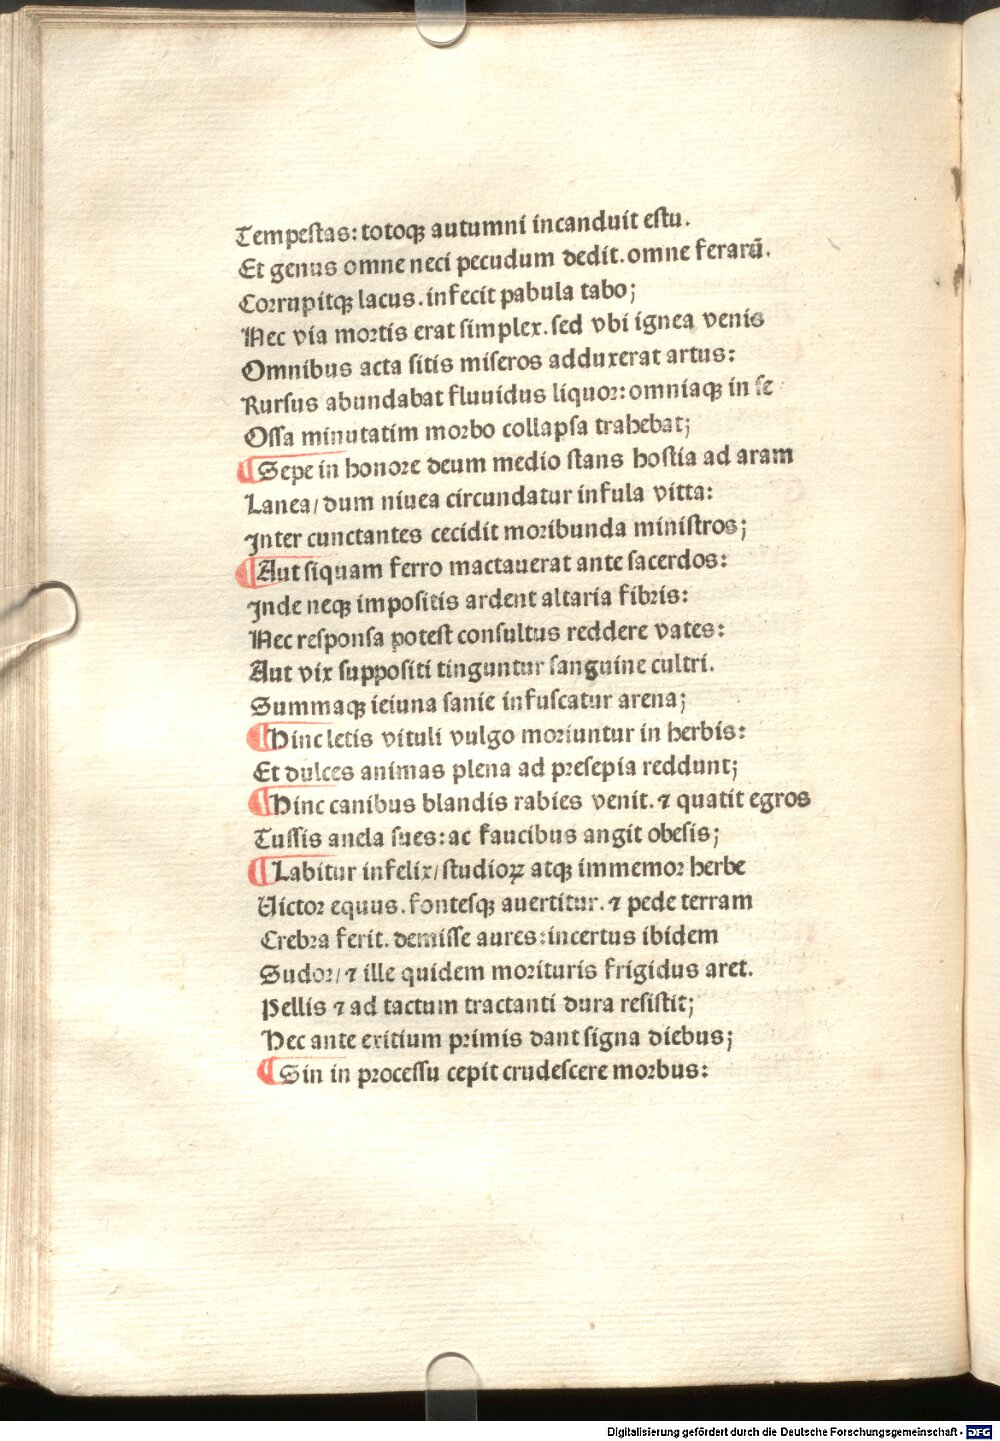 Tempeſtas: totoqꝫ autumni incanduit eſtu.
Et genus omne neci pecudum dedit. omne ferarū.
Corrupitqꝫ lacus. infecit pabula tabo;
Nec via mortis erat ſimplex. ſed vbi ignea venis
Omnibus acta ſitis miſeros adduxerat artus:
Rurſus abundabat fluuidus liquor: omniaqꝫ in ſe
Oſſa minutatim morbo collapſa trahebat;
¶ Sepe in honore deum medio ſtans hoſtia ad aram
Lanea/ dum niuea circundatur infula vitta:
Inter cunctantes cecidit moribunda miniſtros;
¶ Aut ſiquam ferro mactauerat ante ſacerdos:
Inde neqꝫ impoſitis ardent altaria fibris:
Nec reſponſa poteſt conſultus reddere vates:
Aut vix ſuppoſiti tinguntur ſanguine cultri.
Summaqꝫ ieiuna ſanie infuſcatur arena;
¶ Hinc letis vituli vulgo moriuntur in herbis:
Et dulces animas plena ad preſepia reddunt;
¶ Hinc canibus blandis rabies venit. ⁊ quatit egros
Tuſſis anela ſues: ac faucibus angit obeſis;
¶ Labitur infelix/ ſtudioꝝ atqꝫ immemor herbe
Victor equus. fonteſqꝫ auertitur. ⁊ pede terram
Crebra ferit. demiſſe aures: incertus ibidem
Sudor/ ⁊ ille quidem morituris frigidus aret.
Pellis ⁊ ad tactum tractanti dura reſiſtit;
Hec ante exitium primis dant ſigna diebus;
¶ Sin in proceſſu cepit crudeſcere morbus:
Digitalisierung gefördert durch die Deutsche Forschungsgemeinschaft - DFG